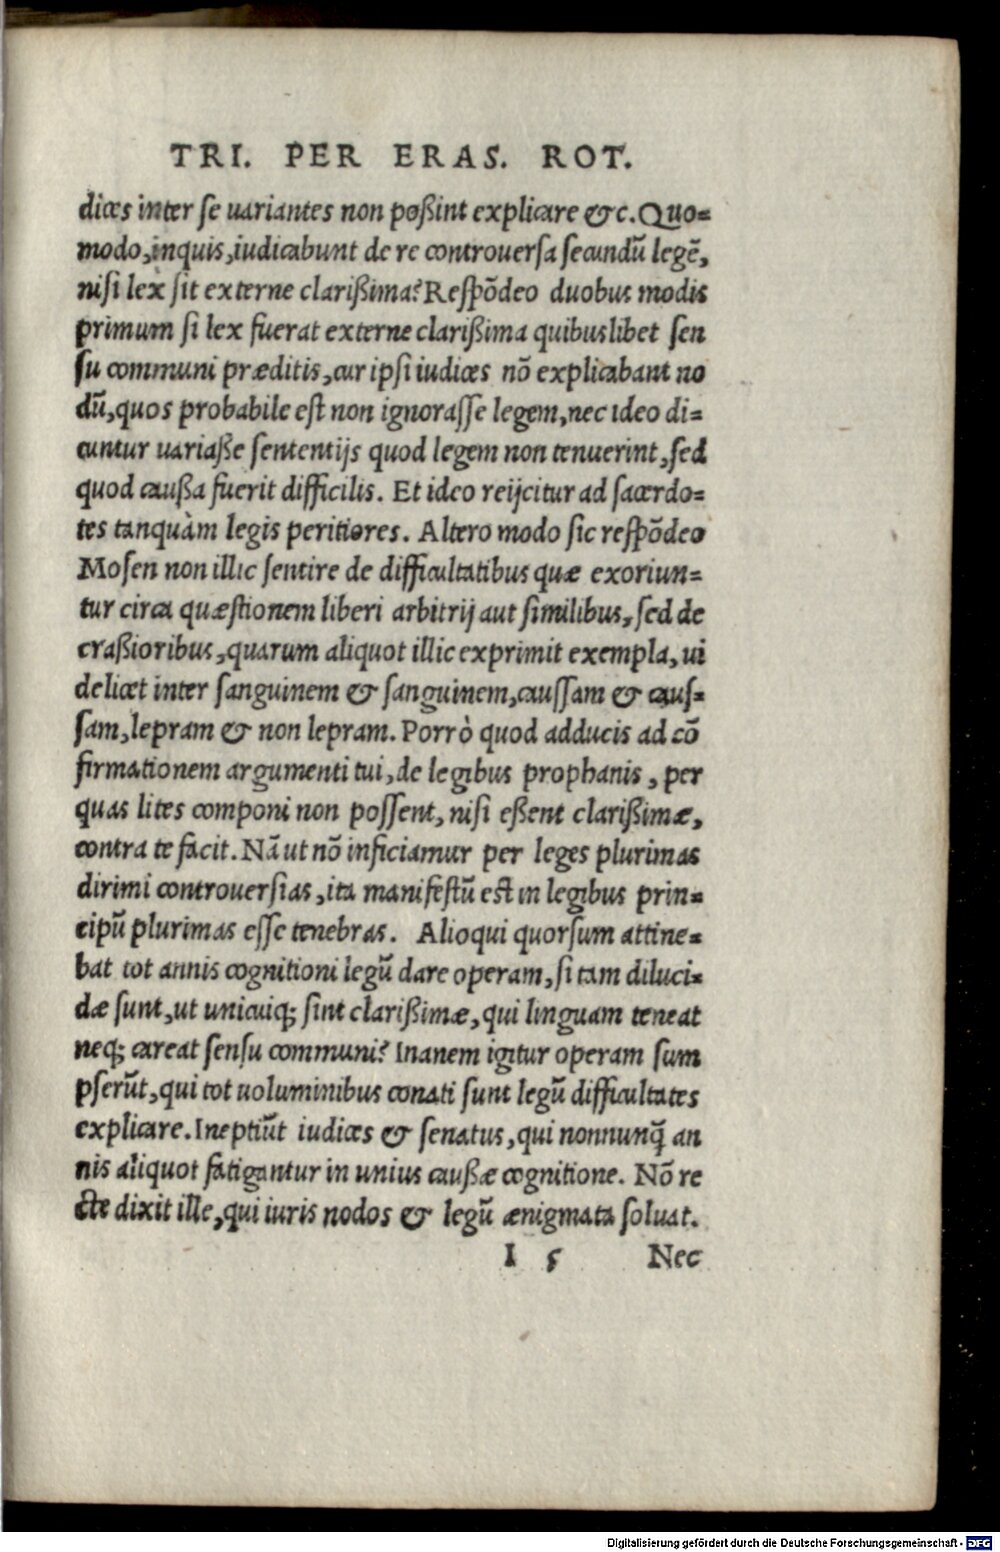 TRI. PER ERAS. ROT.
dices inter se uariantes non poßint explicare &c. Quo-
modo, inquis, iudicabunt de re controuersa secundū legē,
nisi lex sit externe clarißima? Respōdeo duobus modis
primum si lex fuerat externe clarißima quibuslibet sen
su communi præditis, cur ipsi iudices nō explicabant no
dū, quos probabile est non ignorasse legem, nec ideo di-
cuntur uariaße sententijs quod legem non tenuerint, sed
quod caußa fuerit difficilis. Et ideo reijcitur ad sacerdo-
tes tanquàm legis peritiores. Altero modo sic respōdeo
Mosen non illic sentire de difficultatibus quæ exoriun-
tur circa quæstionem liberi arbitrij aut similibus, sed de
craßioribus, quarum aliquot illic exprimit exempla, ui
delicet inter sanguinem & sanguinem, caussam & caus-
sam, lepram & non lepram. Porrò quod adducis ad cō
firmationem argumenti tui, de legibus prophanis, per
quas lites componi non possent, nisi eßent clarißimæ,
contra te facit. Nā ut nō inficiamur per leges plurimas
dirimi controuersias, ita manifestū est in legibus prin-
cipū plurimas esse tenebras. Alioqui quorsum attine-
bat tot annis cognitioni legū dare operam, si tam diluci-
dæ sunt, ut unicuiq; sint clarißimæ, qui linguam teneat
neq; careat sensu communi? Inanem igitur operam sum
pserūt, qui tot uoluminibus conati sunt legū difficultates
explicare. Ineptiūt iudices & senatus, qui nonnunq̄ an
nis aliquot fatigantur in unius caußæ cognitione. Nō re
cte dixit ille, qui iuris nodos & legū ænigmata soluat.
I 5 Nec
Digitalisierung gefördert durch die Deutsche Forschungsgemeinschaft - DFG